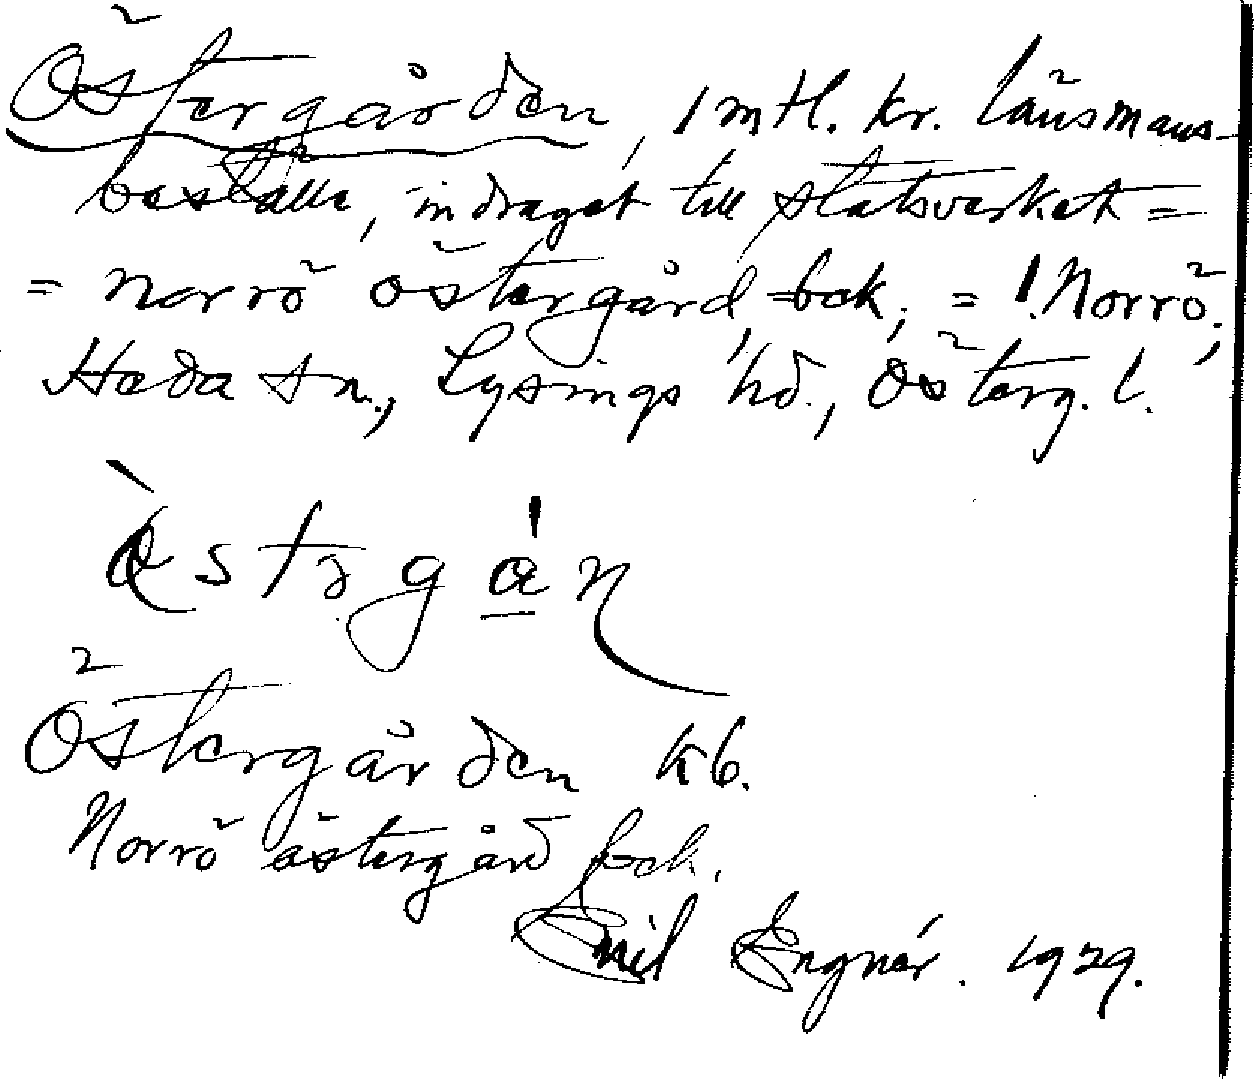 Östergården, 1 mtl. kr. länsmans-
boställe, indraget till statsverket =
= Norrö östergård bok; = ! Norrö;
Heda sn., Lysings hd., Österg. l.
Östergården kb.
Norrö östergård bok.
Emil Engnér. 1929.